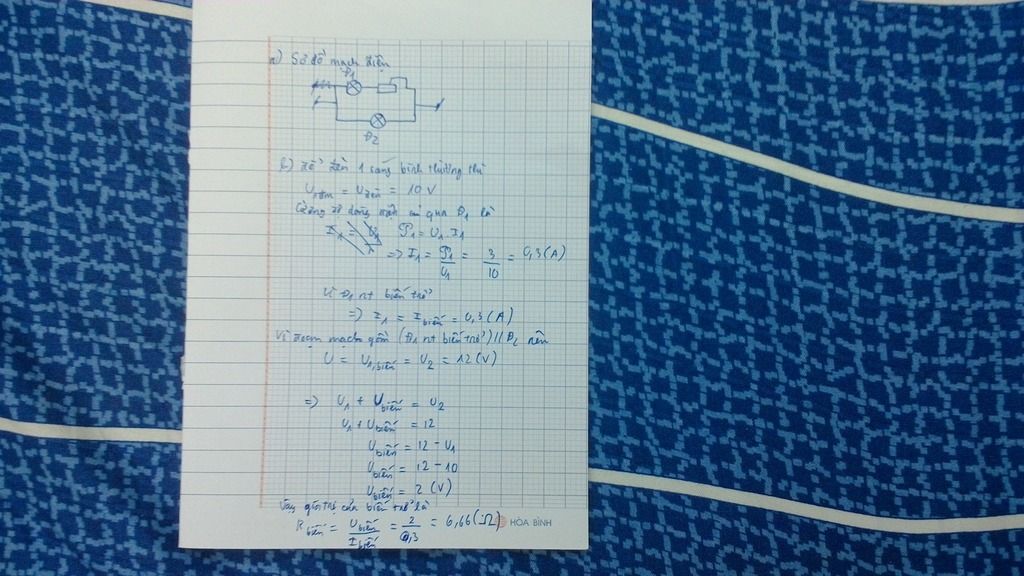 a) Sơ đồ mạch điện
Đ1
Đ2
b) Để đèn 1 sáng bình thường thì
Uđm = Uđèn = 10 V
Cường độ dòng điện qua Đ1 là
P1 = U1 . I1
=> I1 = P1/U1 = 3/10 = 0,3 (A)
Vì Đ1 nt biến trở
=> I1 = I biến = 0,3 (A)
Vì đoạn mạch gồm (Đ1 nt biến trở) // Đ2 nên
U = U1,biến = U2 = 12 (V)
=> U1 + U biến = U2
U1 + U biến = 12
U biến = 12 - U1
U biến = 12 - 10
U biến = 2 (V)
Vậy giá trị của biến trở là
R biến = U biến/I biến = 2/0,3 = 6,66 (Ω)
HÒA BÌNH